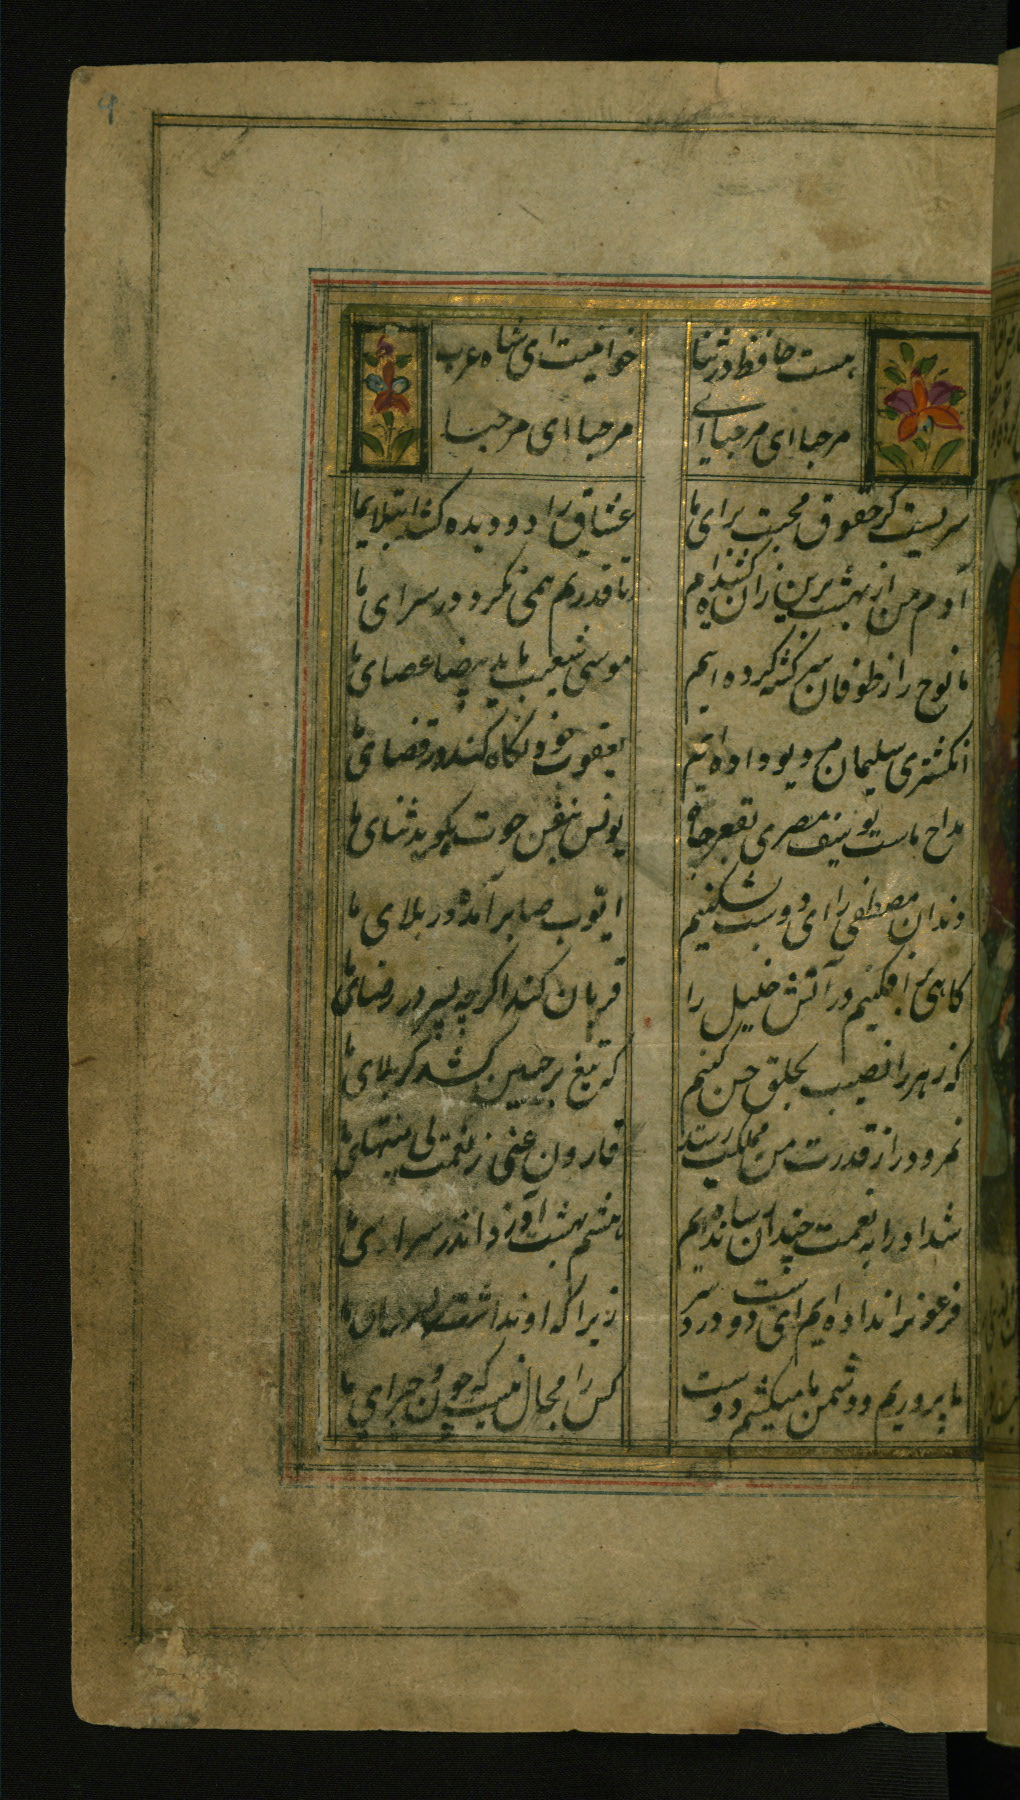 ۹
هست حافظ در ثنا
خوانیست ای شاه عرب
مرحبا ای مرحبا ای
مرحبا ای مرحبا
سریست کر حقوق محبت برای ما
عشاق را دو دیده ابتلایما
آدم من از بهشت برین
تا قدر هم همی نکرد در سرای ما
ما نوح را ز طوفان سر کشته کرده ایم
موسی شعیب ما ید بیضا عصای ما
انکشتری سلیمان من دیو داده ایم
یعقوب خود نکاه کند در قضای ما
مداح ماست یوسف مصری بقعر چاه
یونس ببطن حوت بکوید ثنای ما
دندان مصطفی را ای دوست بشکنیم
ایّوب صابر آمده در بلای ما
کاهی افکنیم در آتش خلیل را
قربان کند اکرچه پسر در رضای ما
که زهر را نصیب بحلق حسن کنیم
که تیغ بر حسین کشد کربلای ما
نمرود را ز قدرت من مملکت رسید
قارون غنی ز نعمت بی منتهای ما
شداد را به نعمت چندان رسانده ایم
بهشت آورد اندر سرای ما
فرعون را نداده ایم ای دوست درد سر
زیرا که او نداشت
ما پروریم دشمن ما میکشیم دوست
کس را مجال نیست که چون و چرای ما